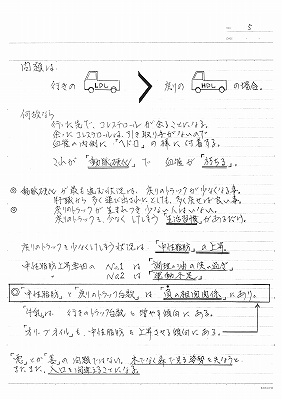 5
問題は
行きの LDL > 戻りの HDL の場合。
何故なら
行った先で、コレステロールが余ることになる。
余ったコレステロールは、引き取り手がないので
血液の内側に「ヘドロ」の様に付着する。
これが「動脈硬化」で 血液が「朽ちる」。
◎ 動脈硬化が最も進む状況は、戻りのトラックが少なくなる事。
肝臓から多く運び出されたとしても、多く戻せば良い事。
◎ 戻りのトラックが生まれつき少ない人はいない。
戻りのトラックを少なくしてしまう 生活習慣 があるだけ。
戻りのトラックを少なくしてしまう状況は、「中性脂肪」の上昇。
中性脂肪上昇要因の No.1は「調理の油の使い過ぎ」
No.2は「運動不足」
◎「中性脂肪」と「戻りのトラック台数」は「負の相関関係」にあり。
「牛乳」は 行きのトラック台数を増やす傾向にある。
「オリーブオイル」も、中性脂肪を上昇させる傾向にある。
「悪」とか「善」の問題ではない。木でなく森で見る姿勢を失なうと
またまた、入口を間違えることになる。